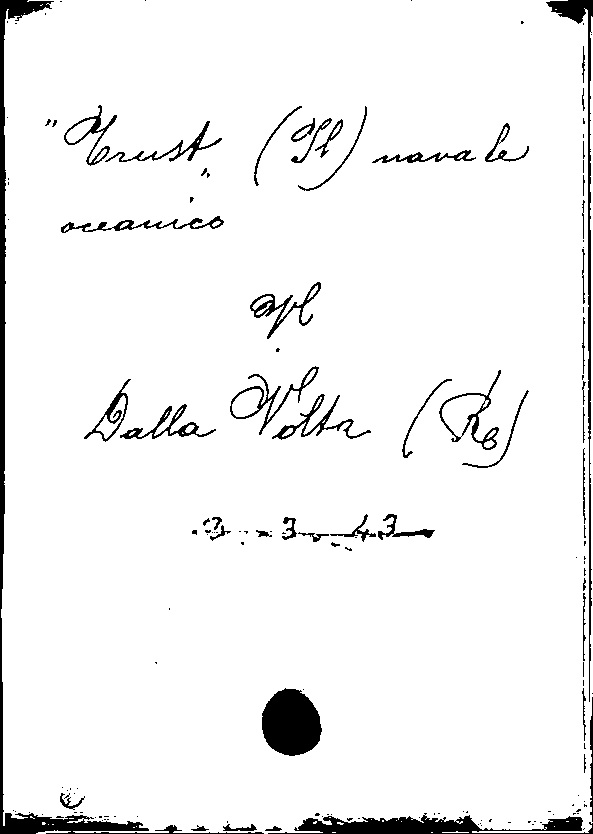 "Trust„ (Il) navale
oceanico
Dalla Volta (R.)
3-3-43